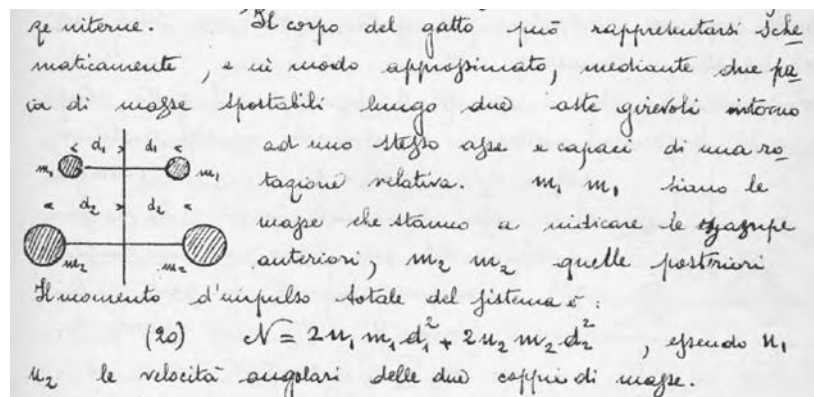 ze interne. Il corpo del gatto può rappresentarsi sche
maticamente, e in modo approssimato, mediante due pa
ia di masse spostabili lungo due aste girevoli intorno
< d₁ > d₁ < ad uno stesso asse e capaci di una ro
m₁ m₁ tazione relativa. m₁ m₁ siano le
< d₂ > d₂ < masse che stanno a indicare le zampe
m₂ m₂ anteriori, m₂ m₂ quelle posteriori
Il momento d'impulso totale del sistema è:
(20) N = 2n₁ m₁ d₁² + 2n₂ m₂ d₂², essendo n₁
n₂ le velocità angolari delle due coppie di masse.